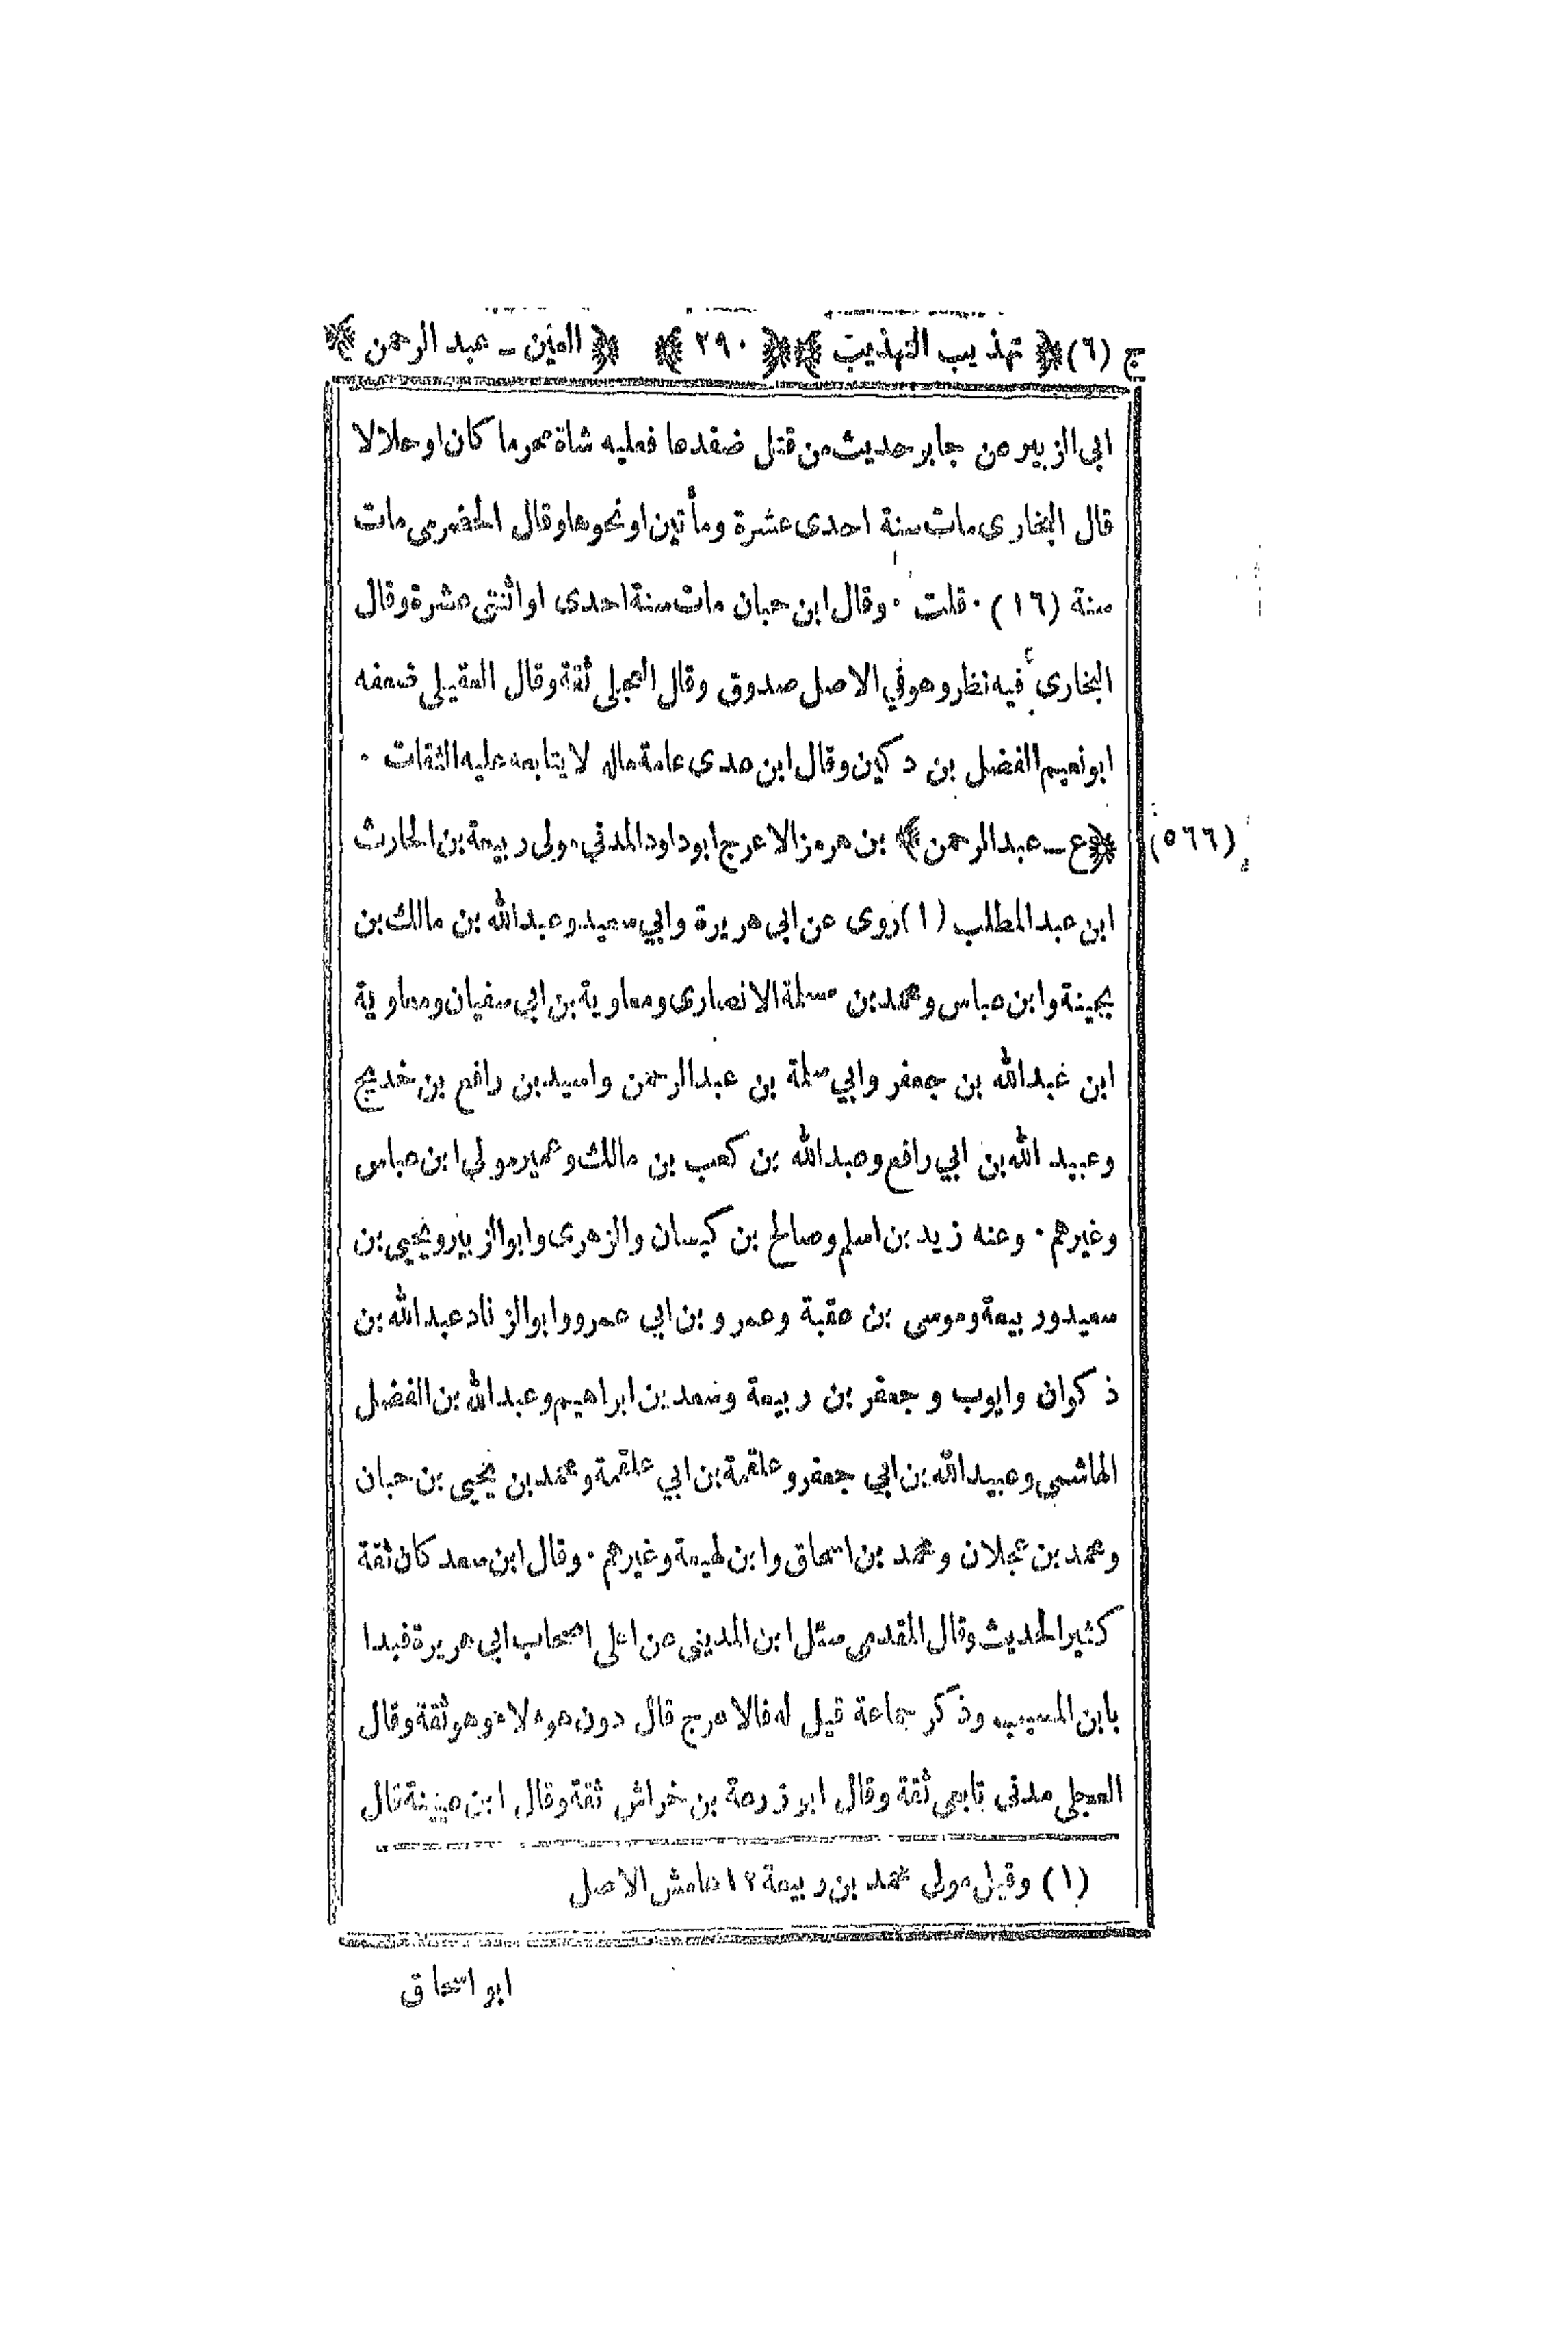 ج (٦) ﴿ تهذيب التهذيب ﴾ ﴿ ٢٩٠ ﴾ ﴿ العين ـ عبد الرحمن ﴾
ابى الزبير عن جابر حديث من قتل ضفدها فعليه شاة محرما كان او حلالا لا
قال البخارى مات سنة احدى عشرة ومأتين او نحوها وقال الحضرمى مات
سنة (١٦) ٠ قلت ٠ وقال ابن حبان مات سنة احدى او اثنتى عشرة وقال
البخارى فيه نظر وهو في الاصل صدوق وقال العجلى ثقة وقال العقيلى ضعفه
ابو نعيم الفضل بن دكين وقال ابن عدى عامة ماله لا يتابعه عليه الثقات ٠
(٥٦٦) ﴿ ع ـ عبد الرحمن ﴾ بن هرمز الاعرج ابو داود المدني مولى ربيعة بن الحارث
ابن عبد المطلب (١) روى عن ابى هريرة وابي سعيد وعبد الله بن مالك بن
بحينة وابن عباس ومحمد بن مسلمة الانصارى ومعاوية بن ابي سفيان ومعاوية
ابن عبد الله بن جعفر وابي سلمة بن عبد الرحمن واسيد بن رافع بن خديج
وعبيد الله بن ابي رافع وعبد الله بن كعب بن مالك وعمير مولى ابن عباس
وغيرهم ٠ وعنه زيد بن اسلم وصالح بن كيسان والزهرى وابو الزبير ويحيى بن
سعيد وربيعة وموسى بن عقبة وعمرو بن ابى عمرو وابو الزناد عبد الله بن
ذكوان وايوب وجعفر بن ربيعة وسعد بن ابراهيم وعبد الله بن الفضل
الهاشمى وعبيد الله بن ابي جعفر وعلقمة بن ابي علقمة ومحمد بن يحيى بن حبان
ومحمد بن عجلان ومحمد بن اسحاق وابن لهيعة وغيرهم ٠ وقال ابن سعد كان ثقة
كثير الحديث وقال المقدمى سئل ابن المدينى عن اعلى اصحاب ابى هريرة فبدا
بابن المسيب وذكر جماعة قيل له فالاعرج قال دون هؤلاء وهو ثقة وقال
العجلى مدني تابعى ثقة وقال ابو زرعة بن خراش ثقة وقال ابن عيينة قال
(١) وقيل مولى محمد بن ربيعة ١٢ هامش الاصل
ابو اسحاق